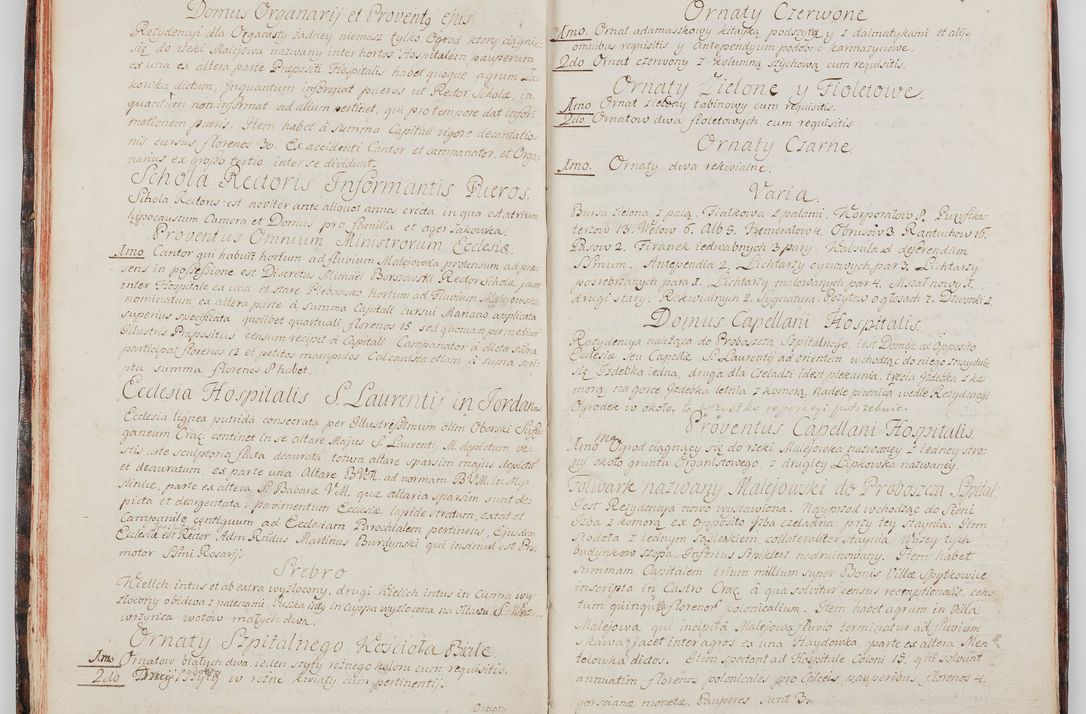 Domus Organarij et Proventg ejus.
Rezydencyi dla Organisty żadney niemasz tylko Ogrod, ktory ciągnie
się do rzeki Malejowa nazwany inter hortos Hospitalem pauperum
ex una ex altera parte Præpositi Hospitalis habet quoque agrum Ła
kowka dictum, Inquantum informat pueros ut Rector Scholæ, in
quantum non informat ad alium pertinet, qui pro tempore dat infor
mationem pueris. Item habet à Summa Capitali vigore decantatio
nis cursus florenos 30. Ex accidenti Cantor et campanator, et Orga
narius ex grosso tertio inter se dividunt.
Schola Rectoris Informantis Pueros.
Schola Rectoris est noviter ante aliquot annos erecta in qua est atrium
hypocaustum Camera et Domus pro familia et ager Łakowka.
Proventus Omnium Ministrorum Ecclesiæ
1mo Cantor qui habuit hortum ad fluvium Maleyowka protensum ad præ
sens in possessione est Discretus Michaël Borszowski Rector Scholæ, jacet
inter Hospitale ex una et stare Plebansko hortum ad Fluvium Malejowska
nominatum ex altera parte à Summa Capitali cursui Mariano applicata
superius specificata quolibet quartuali florenos 15 sed quoniam per medium
Illustris Præpositus censum recipit à Capitali Campanator à dicta summa
participat florenos 12 et petitos manipulos Calcanista etiam à supra scri-
pta summa florenos 8 habet.
Ecclesia Hospitalis S. Laurentij in Jordan
Ecclesia lignea putrida consecrata per Illustrissimum olim Oborski Suffra
ganeum Crac: continet in se altare Majus S. Laurentij M. depictum ve-
stis arte sculptoria facta deaurata totum altare sparsim majus depictum
et deauratum, ex parte una Altare B.V.M. ad normam B.V.M. in My-
slinice, parte ex altera S. Babaræ V.M. quæ altaria sparsim sunt de-
picta et deargentata, pavimentum Ecclesiæ lapide stratum, extat et
Campanile contiguum ad Ecclesiam Parochialem pertinens, Ejusdem
Ecclesiæ est Rector Adm Rndus Martinus Burdynski qui insimul est Pro
motor SSmi Rosarij.
Srebro
Kielich intus et ab extra wyzłocony, drugi Kielich intus in Cuppa wy-
złocony obidwa z patenami. Puszka in Cuppa wyzłocona na Ołtarzu S. Waw-
wrzynca wotow małych dwa.
Ornaty Szpitalnego Kościoła Białe
1mo Ornatow białych dwa, ieden szyty rożnego koloru cum requisitis.
2do Drugi w rożne kwiaty cum pertinentij.
Ornaty
Ornaty Czerwone
1mo. Ornat adamaszkowy kitayką podszyty y z dalmatykami et alijs
omnibus requisitis y antependyum podobne karmazynowe.
2do Ornat czerwony z kolumną szychową cum requisitis.
Ornaty Zielone y Fioletowe.
1mo Ornat zielony tabinowy cum requisitis.
2do Ornatow dwa fioletowych cum requisitis
Ornaty Czarne.
1mo. Ornaty dwa rekwialne.
Varia.
Bursa zielona z palą. Fiałkowa z palami, Korporałow 8. Puryfika-
terzow 13. Welow 6. Alb 5. Humerałow 4. Obrusow 3. Rantuchow 16.
Pasow 2. Firanek iedwabnych 3 pary. Kapsula ad deferendum
SSmum. Antependia 2. Lichtarzy cynowych par 3. Lichtarzy
posrebrzanych para 1. Lichtarzy malowanych par 4. Mszał nowy 1.
drugi stary. Rekwialnych 2. Sygnatura. Pozytew o głosach 7. Dzwonki 2
Domus Capellani Hospitalis.
Rezydencya należąca do Proboszcza Szpitalnego iest Domek ex opposito
Ecclesiæ seu Capellæ S. Laurentij ad orientem wchodząc do niego znayduie
się Izdebka iedna, druga dla Czeladzi idest piekarnia, trzecia Izdebka z ko
morą, na gorce Izdebka letnia z komorą, nadole piwnica wedle Rezydencyi
Ogrodek w około, to wszytko reparacyi potrzebuie.
Proventus Capellani Hospitalis.
1mo Ogrod ciągnący się do rzeki Malejowka nazwaney z iedney stro
ny około gruntu Organistowego, z drugiey Lipkowka nazwaney.
Folwark nazwany Malejowski do Proboszcza Szpital.
Jest Rezydencya nowo wystawiona. Nayprzod wchodząc do Sieni
Izba z komorą ex opposito Izba czeladna przy tey staynia. Item
Stodoła z iednym sąsiekiem collateraliter staynia. Wszey tych
budynkow szopa. Inferius Spiklerz nadruinowany. Item habet
summam Capitalem trium millium super Bonis Villæ Spytkowice
inscripta in Castro Crac à qua solvitur census reemptionalis, cen-
tum quinquag florenos polonicalium. Item habet agrum in Villa
Malejowa qui incipit à Malejowa fluvio terminatur ad fluvium
Skawa, jacet inter agros ex una Haydowka parte ex altera Men-
telowka dictos. Item spectant ad Hospitale Coloni 15, qui solvunt
annuatim florenos polonicales pro Calceis pauperibus florenos 4.
gorscianæ monetæ. Pauperes sunt 3.